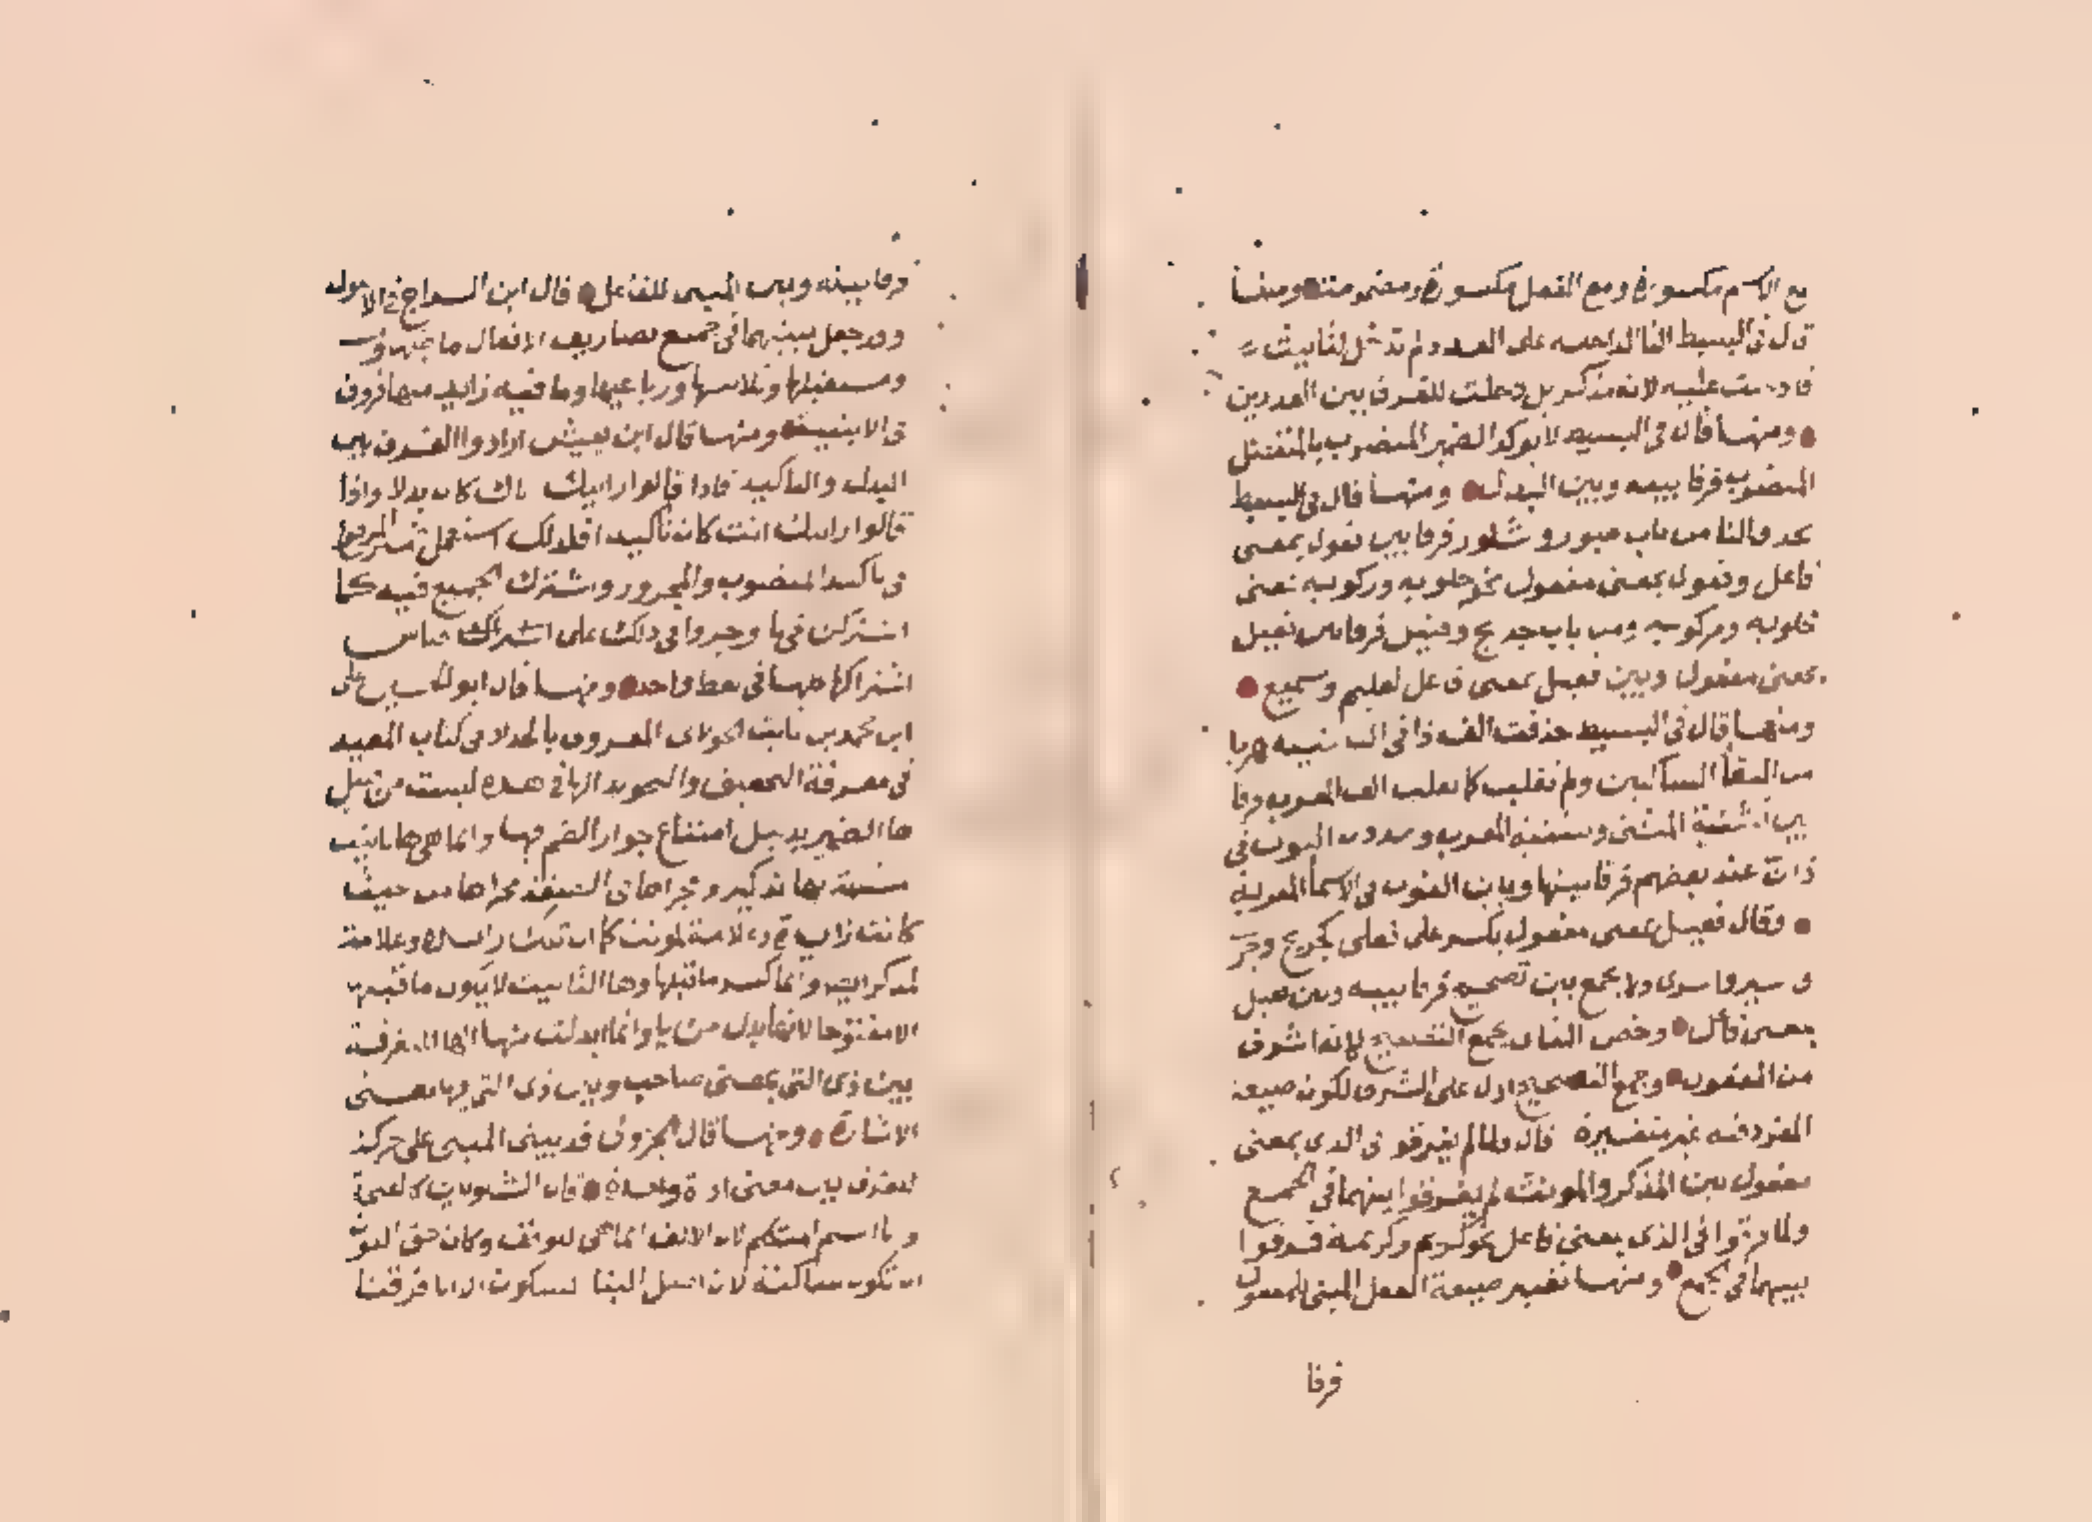 مع الاسم مكسورة ومع الفعل مكسورة ومضمومة ومنها
قال في البسيط التا الداخلة على العدد لم تدخل لتانيث
ما دخلت عليه لانه مذكر بل دخلت للفرق بين العددين
ومنها قال في البسيط لا يوكد الضمير المنصوب بالمنفصل
المنصوب فرقا بينه وبين البدل ومنها قال في البسيط
حذفوا التا من باب صبور وشكور فرقا بين فعول بمعنى
فاعل وفعول بمعنى مفعول نحو حلوبه وركوبه بمعنى
محلوبه ومركوبه ومن باب جريح وقتيل فرقا بين فعيل
بمعنى مفعول وبين فعيل بمعنى فاعل كعليم وسميع
ومنها قال في البسيط حذفت الف ذا في التثنيه هربا
من التقا الساكنين ولم تقلب كما تقلب الف المعرب فرقا
بين تثنية المبني وتثنية المعرب وشددت النون في
ذان عند بعضهم فرقا بينها وبين النون في الاسما المعربه
وقال فعيل بمعنى مفعول يكسر على فعلى كجريح وجرحى
واسير واسرى ولا يجمع جمع تصحيح فرقا بينه وبين فعيل
بمعنى فاعل وخص الفاعل بجمع التصحيح لانه اشرف
من المفعول وجمع التصحيح ادل على الشرف لكون صيغة
المفرد فيه غير متغيره قال ولما لم يفرقوا في الذي بمعنى
مفعول بين المذكر والمونث لم يفرقوا بينهما في الجمع
ولما فرقوا في الذي بمعنى فاعل نحو كريم وكريمة فرقوا
بينهما في الجمع ومنها تغيير صيغة الفعل المبني للمفعول
فرقا
فرقا بينه وبين المبني للفاعل قال ابن السراج في الاصول
وقد جعل بينهما في جميع تصاريف الافعال ماضيها
ومستقبلها وثلاثيها ورباعيها وما فيه زايد منها فروق
في الابنية ومنها قال ابن يعيش ارادوا الفرق بين
البدل والتاكيد فاذا قالوا رايتك اياك كان بدلا واذا
قالوا رايتك انت كان تاكيدا فلذلك استعمل ضمير المرفوع
في تاكيد المنصوب والمجرور واشترك الجميع فيه كما
اشتركن في نا وجروا في ذلك على اشتراك قياس
اشتراكها كلها في لفظ واحد ومنها قال ابو علي
ابن محمد بن ثابت الخولاني المعروف بالحداد في كتاب المفيد
في معرفة التحقيق والتجويد الها في هذه ليست من قبيل
ها الضمير بدليل امتناع جواز الضم فيها وانما هي ها تانيث
مشبهة بها تذكير ومجراها في الصفة مجراها من حيث
كانت زايدة وعلامة لمونث كما ان تلك زايدة وعلامة
لمذكر ايضا وانما كسر ما قبلها وها التانيث لا يكون ما قبلها
الا مفتوحا لانها بدل من يا وانما ابدلت منها الها للتفرقة
بين ذي التي بمعنى صاحب وبين ذي التي فيها معنى
الاشارة ومنها قال الجزولي قد يبنى المبني على حركة
للفرق بين معنى اداة واحدة قال الشلوبين كالفتحة
في انا اسم المتكلم لان الالف انما هي للوقف وكان حق النون
ان تكون ساكنة لان اصل البنا السكون الا انا فرقنا